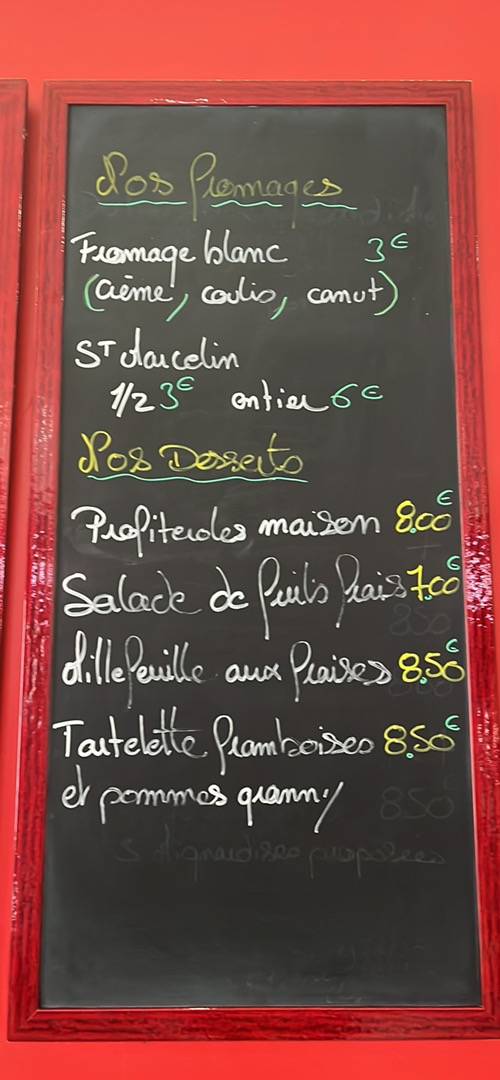 Nos Fromages
Fromage blanc 3€
(crème, coulis, canut)
ST Marcelin
1/2 3€ entier 6€
Nos Desserts
Profiteroles maison 8.00€
Salade de fruits frais 7.00€
Millefeuille aux fraises 8.50€
Tartelette framboises 8.50€
et pommes granny
850